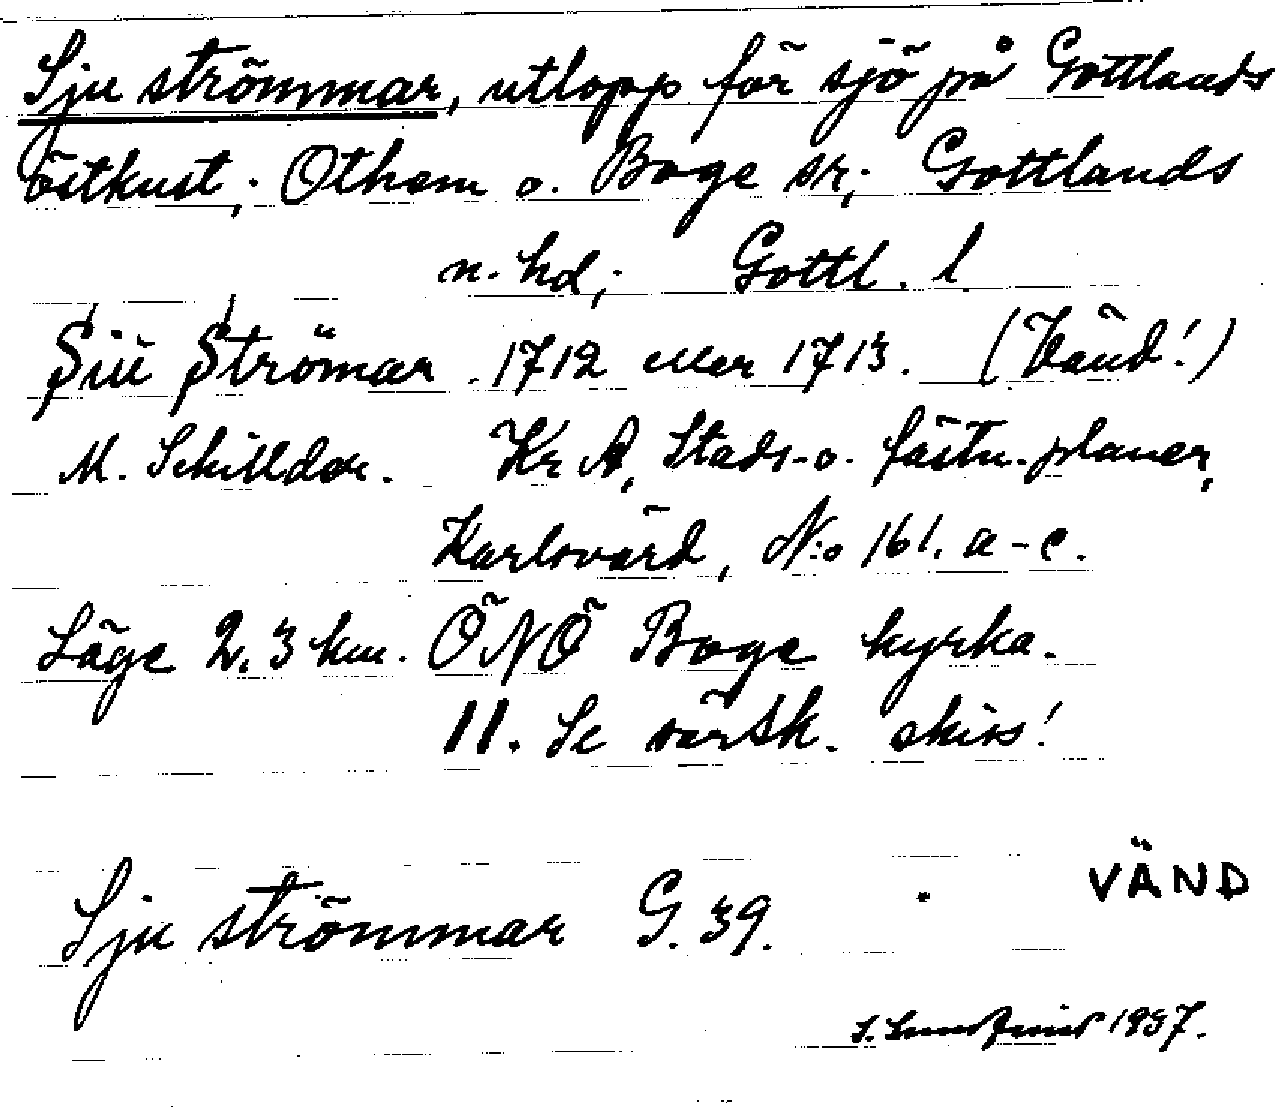 Sju strömmar, utlopp för sjö på Gottlands
östkust; Othem o. Boge sr; Gottlands
n. hd; Gottl. l
Siu Strömar. 1712 eller 1713. (Vänd!)
M. Schilldor. Kr A, Stads- o. fästn. planer,
Karlsvärd, N:o 161. a-c.
Läge 2.3 km. ÖNÖ Boge kyrka.
11. Se särsk. skiss!
Sju strömmar G. 39.
VÄND
1937.